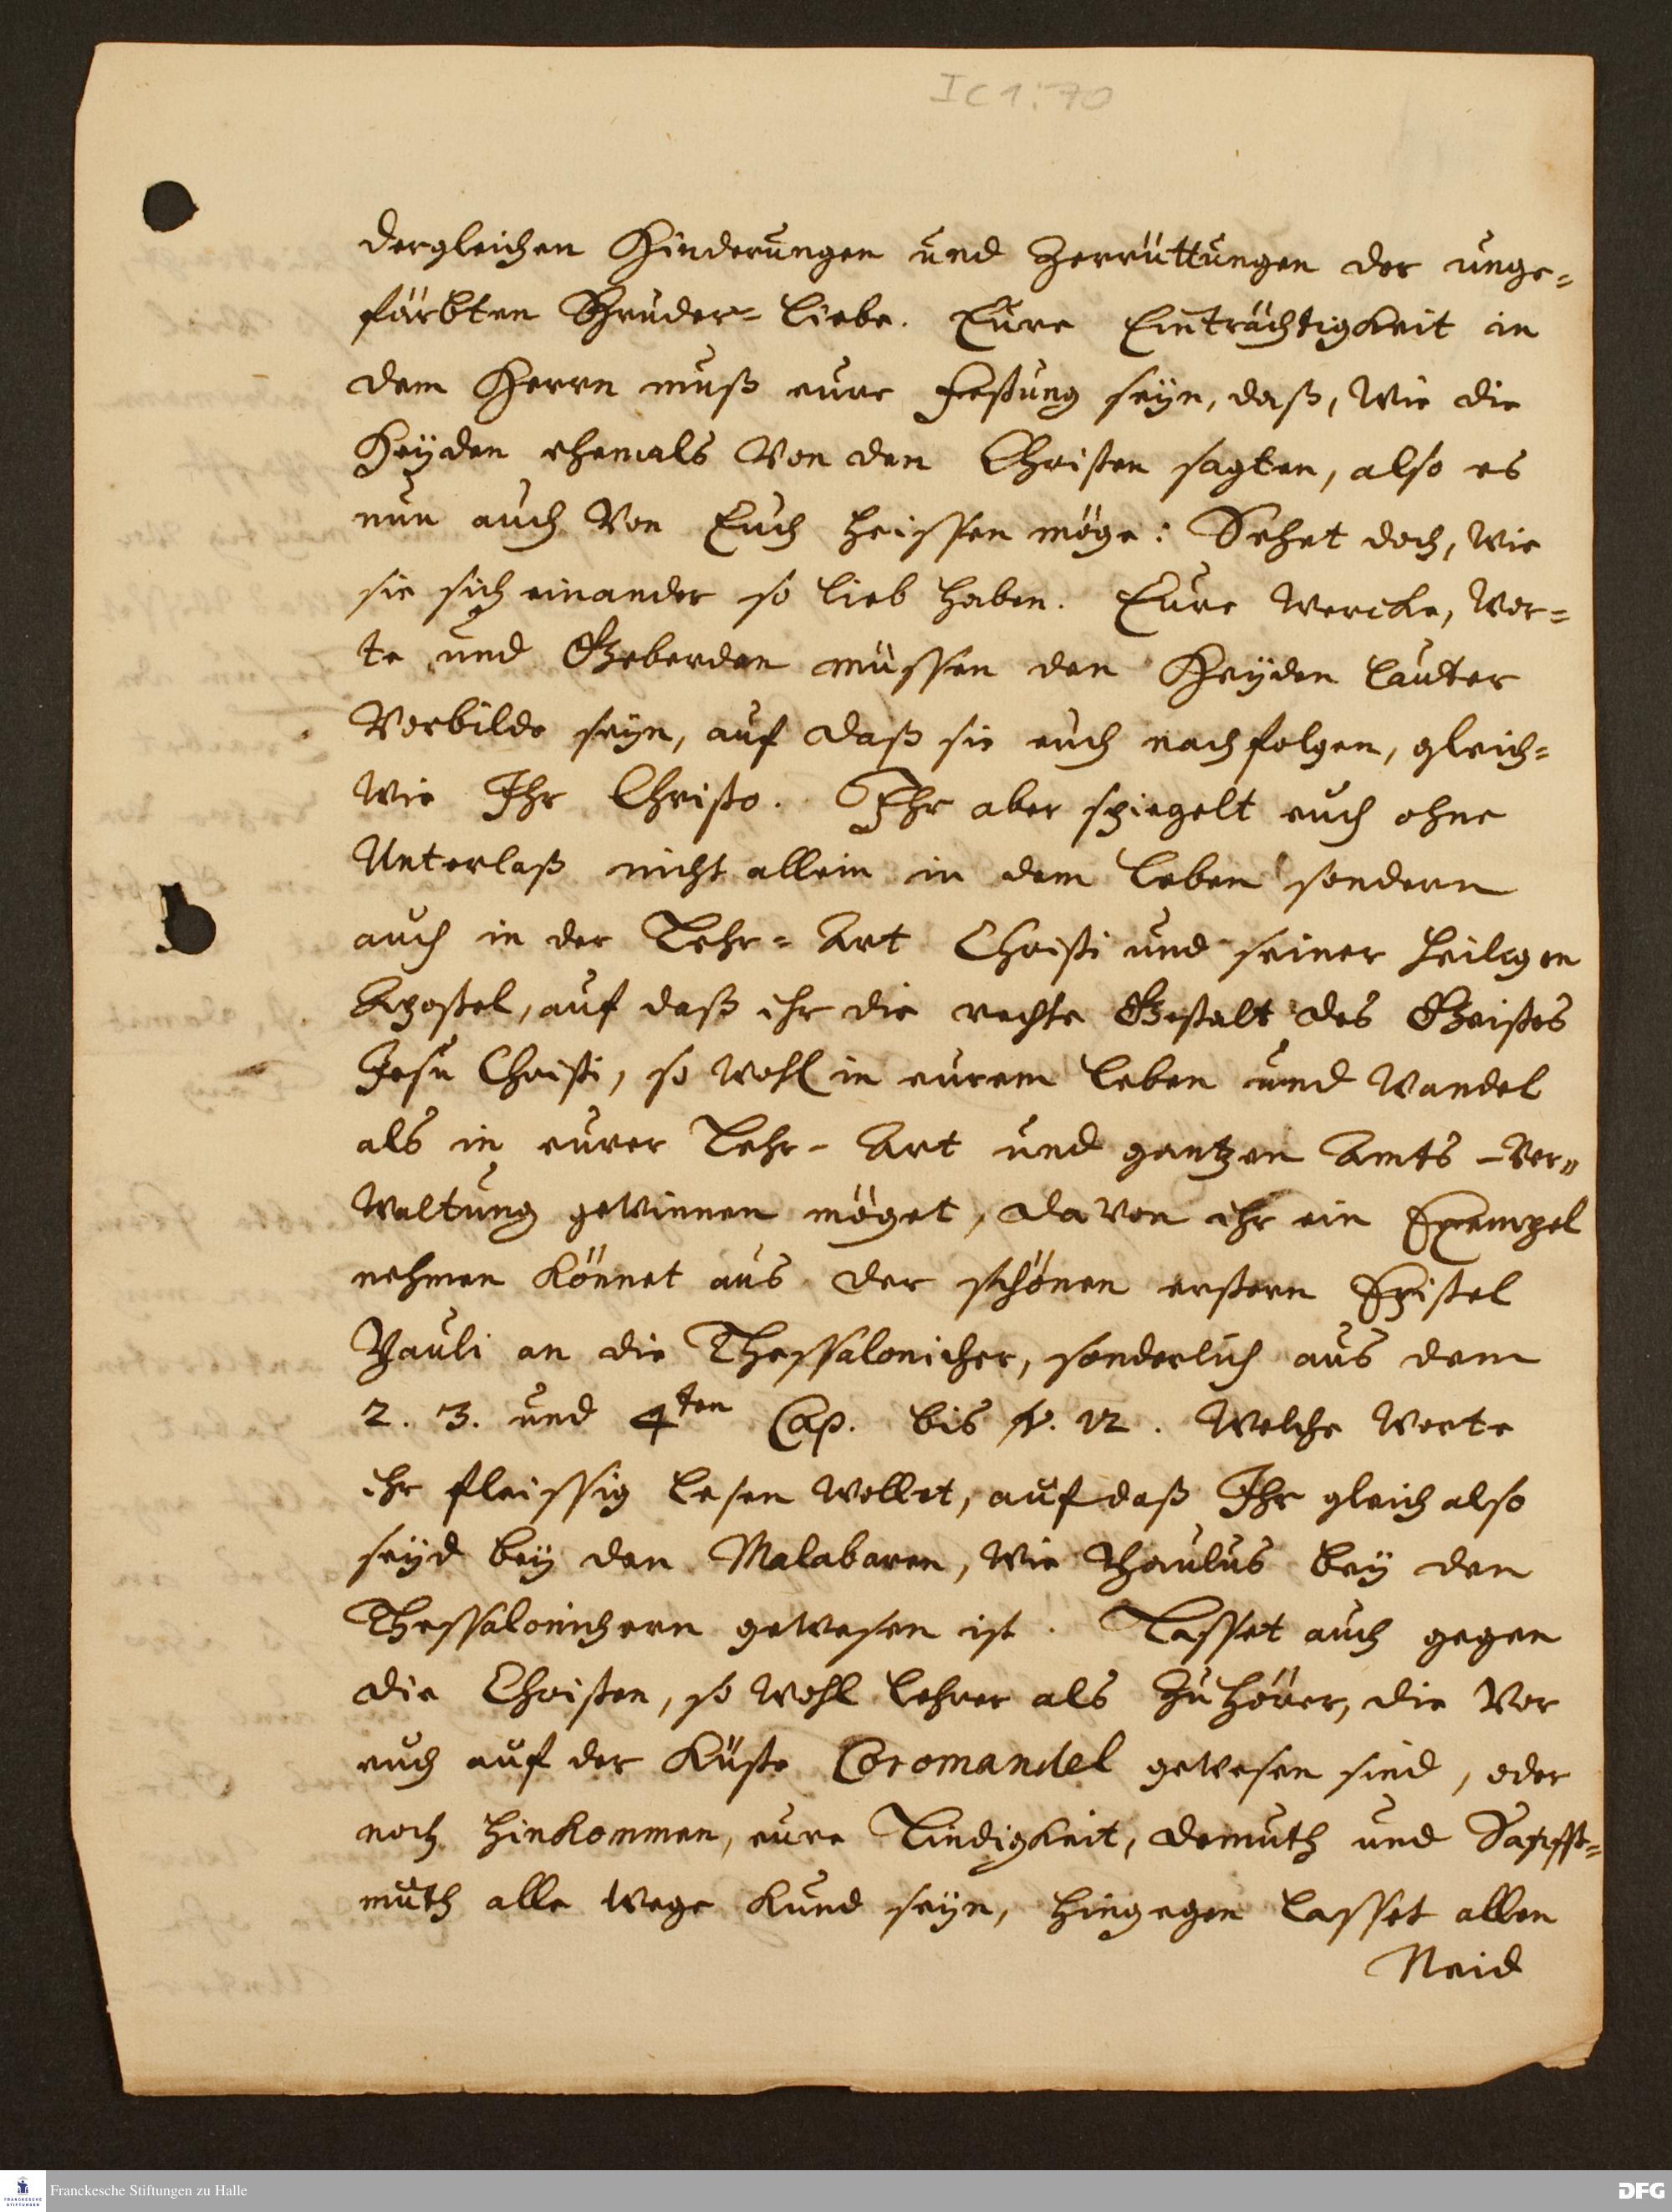 IC 1:70
dergleichen Hinderungen und Zerrüttungen der unge-
färbten Bruder-Liebe. Eure Einträchtigkeit in
dem Herrn muß eure Festung seyn, daß, wie die
Heyden ehemals von den Christen sagten, also es
nun auch von Euch heissen möge: Sehet doch, wie
sie sich einander so lieb haben. Eure Wercke, Wor-
te und Geberden müssen den Heyden lauter
Vorbilde seyn, auf daß sie euch nachfolgen, gleich-
wie Ihr Christo. Ihr aber spiegelt euch ohne
Unterlaß nicht allein in dem Leben sondern
auch in der Lehr-Art Christi und seiner heiligen
Apostel, auf daß ihr die rechte Gestalt des Geistes
Jesu Christi, so wohl in eurem Leben und Wandel
als in eurer Lehr-Art und gantzen Amts-Ver-
waltung gewinnen möget, davon ihr ein Exempel
nehmen könnet aus der schönen erstern Epistel
Pauli an die Thessalonicher, sonderlich aus dem
2. 3. und 4ten Cap. bis v. 12. Welche Worte
ihr fleissig lesen wollet, auf daß Ihr gleich also
seyd bey den Malabaren, wie Paulus bey den
Thessalonichern gewesen ist. Lasset auch gegen
die Christen, so wohl Lehrer als Zuhörer, die vor
euch auf der Küste Coromandel gewesen sind, oder
noch hinkommen, eure Lindigkeit, Demuth und Sanfft-
muth alle Wege kund seyn, hingegen lasset allen
Neid
Franckesche Stiftungen zu Halle
FRANCKESCHE
STIFTUNGEN
DFG